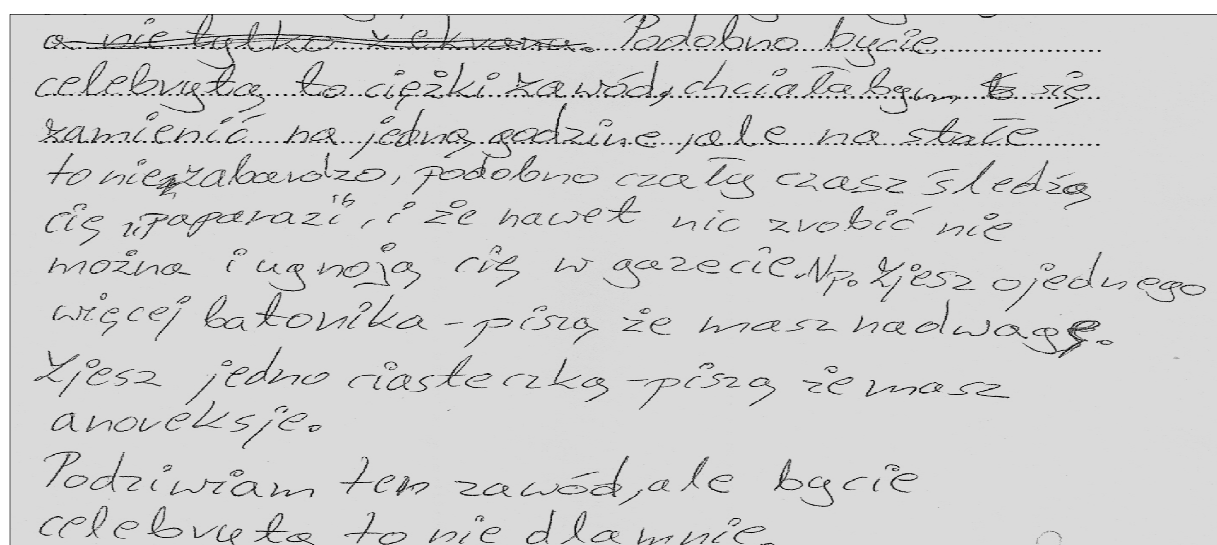 a nie tylko z ekranu. Podobno bycie
celebrytą to ciężki zawód, chciałabym to się
zamienić na jedną godzine, ale na stałe
to nie zabardzo, podobno czały czasz śledzą
cię "paparazi", i że nawet nic zrobić nie
można i ugnoją cię w gazecie. Np. Zjesz ojednego
więcej batonika - piszą że masz nadwagę.
Zjesz jedno ciasteczką - piszą że masz
anoreksje.
Podziwiam ten zawód, ale bycie
celebrytą to nie dla mnie.